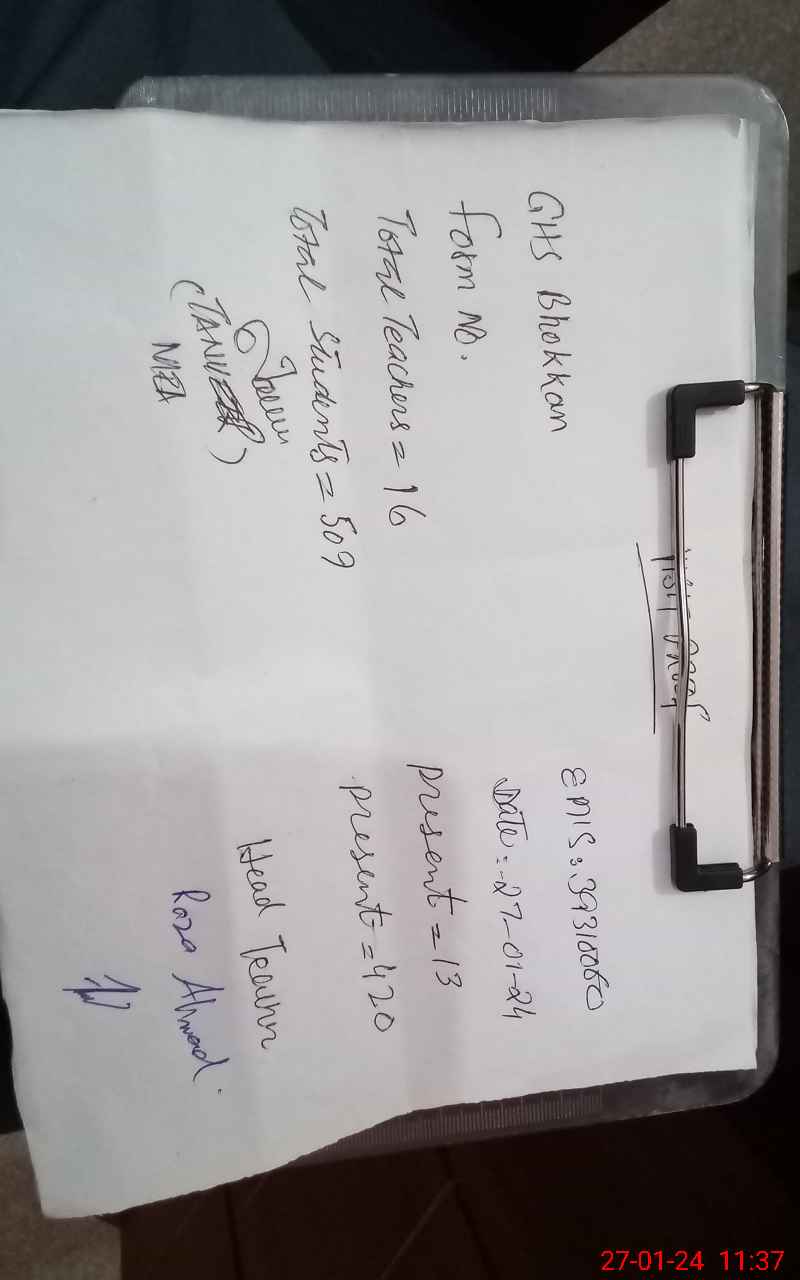 GHS Bhokkan
EMIS: 39310060
Form No.
Date: 27-01-24
Total Teachers = 16
present = 13
Total Students = 509
present = 420
Head Teacher
(TANVEER)
MEA
Raza Ahmad.
27-01-24 11:37